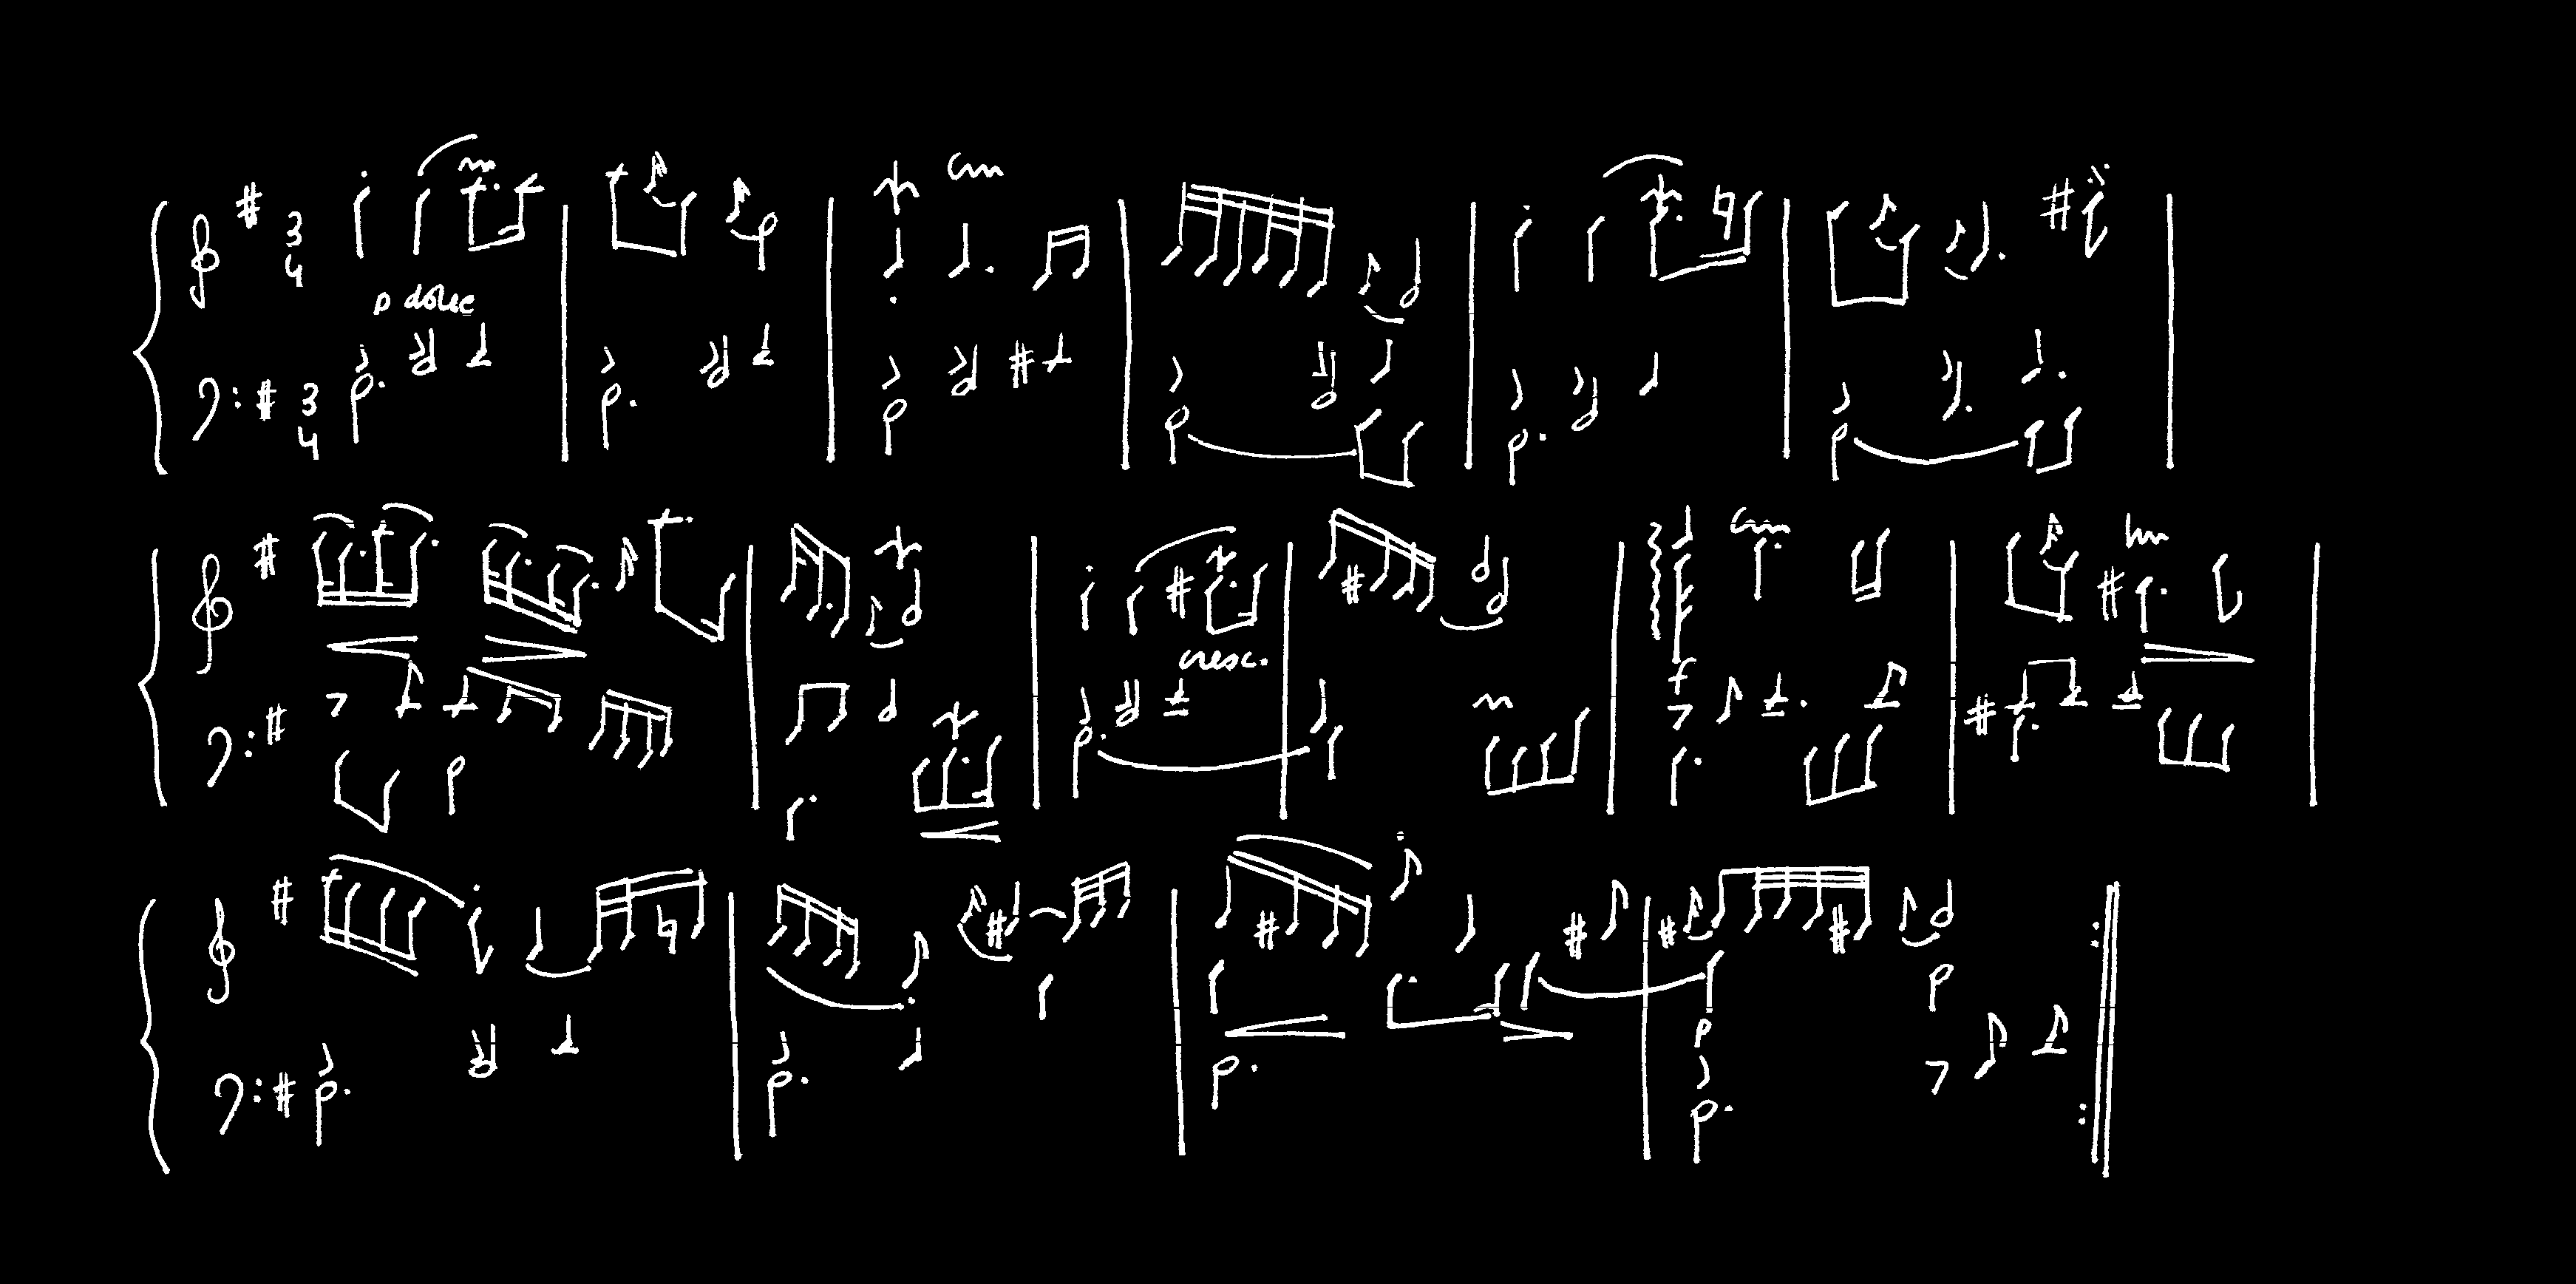 3
4
p dolce
3
4
cresc.
f
p